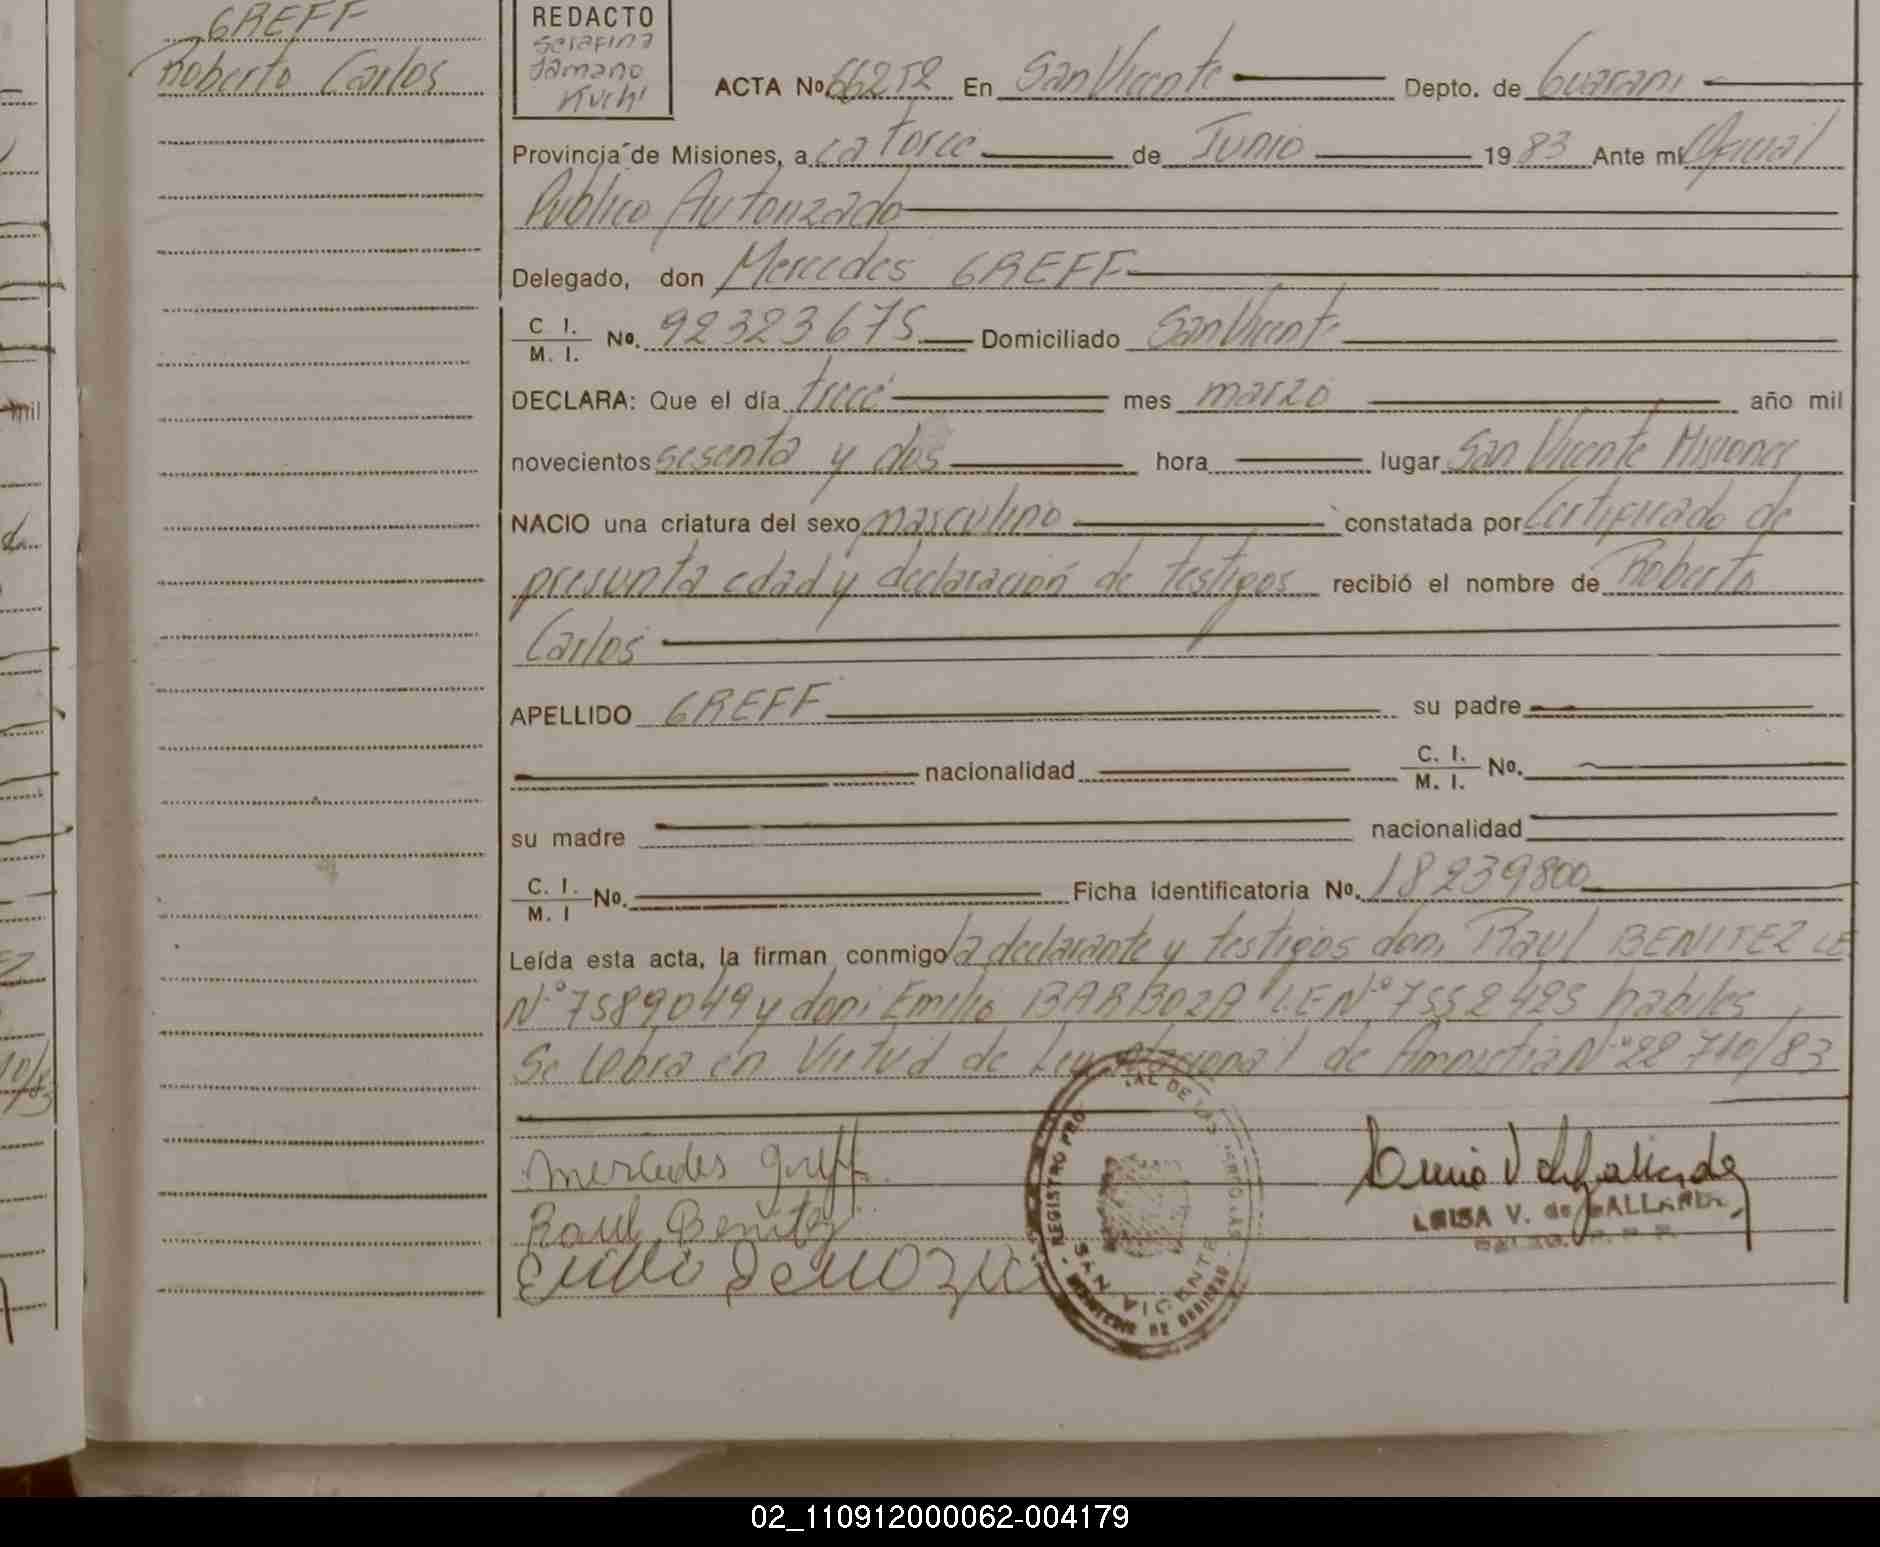 GREFF
Roberto Carlos
REDACTO
Serafina
Tamano
Kuchi
ACTA No 66252 En San Vicente Depto. de Guarani
Provincia de Misiones, a catorce de Junio 1983 Ante mi Oficial
Publico Autorizado
Delegado, don Mercedes GREFF
C I. / M. I. No. 92323675 Domiciliado San Vicente
DECLARA: Que el día trece mes marzo año mil
novecientos sesenta y dos hora lugar San Vicente Misiones
NACIO una criatura del sexo masculino constatada por Certificado de
presunta edad y declaración de testigos recibió el nombre de Roberto
Carlos
APELLIDO GREFF su padre
nacionalidad C. I. / M. I. No.
su madre nacionalidad
C. I. / M. I No. Ficha identificatoria No. 18239800
Leída esta acta, la firman conmigo la declarante y testigos don, Raul BENITEZ LE
Nº 7589049 y don; Emilio BARBOZA LE Nº 7552425 habiles
Se labra en Virtud de Ley Nacional de Amnistia Nº 22 710/83
mercedes greff
Raul Benitez
LUISA V. de GALLARDO
REGISTRO PRO AL DE LAS PERSONAS
SAN VICENTE
mil